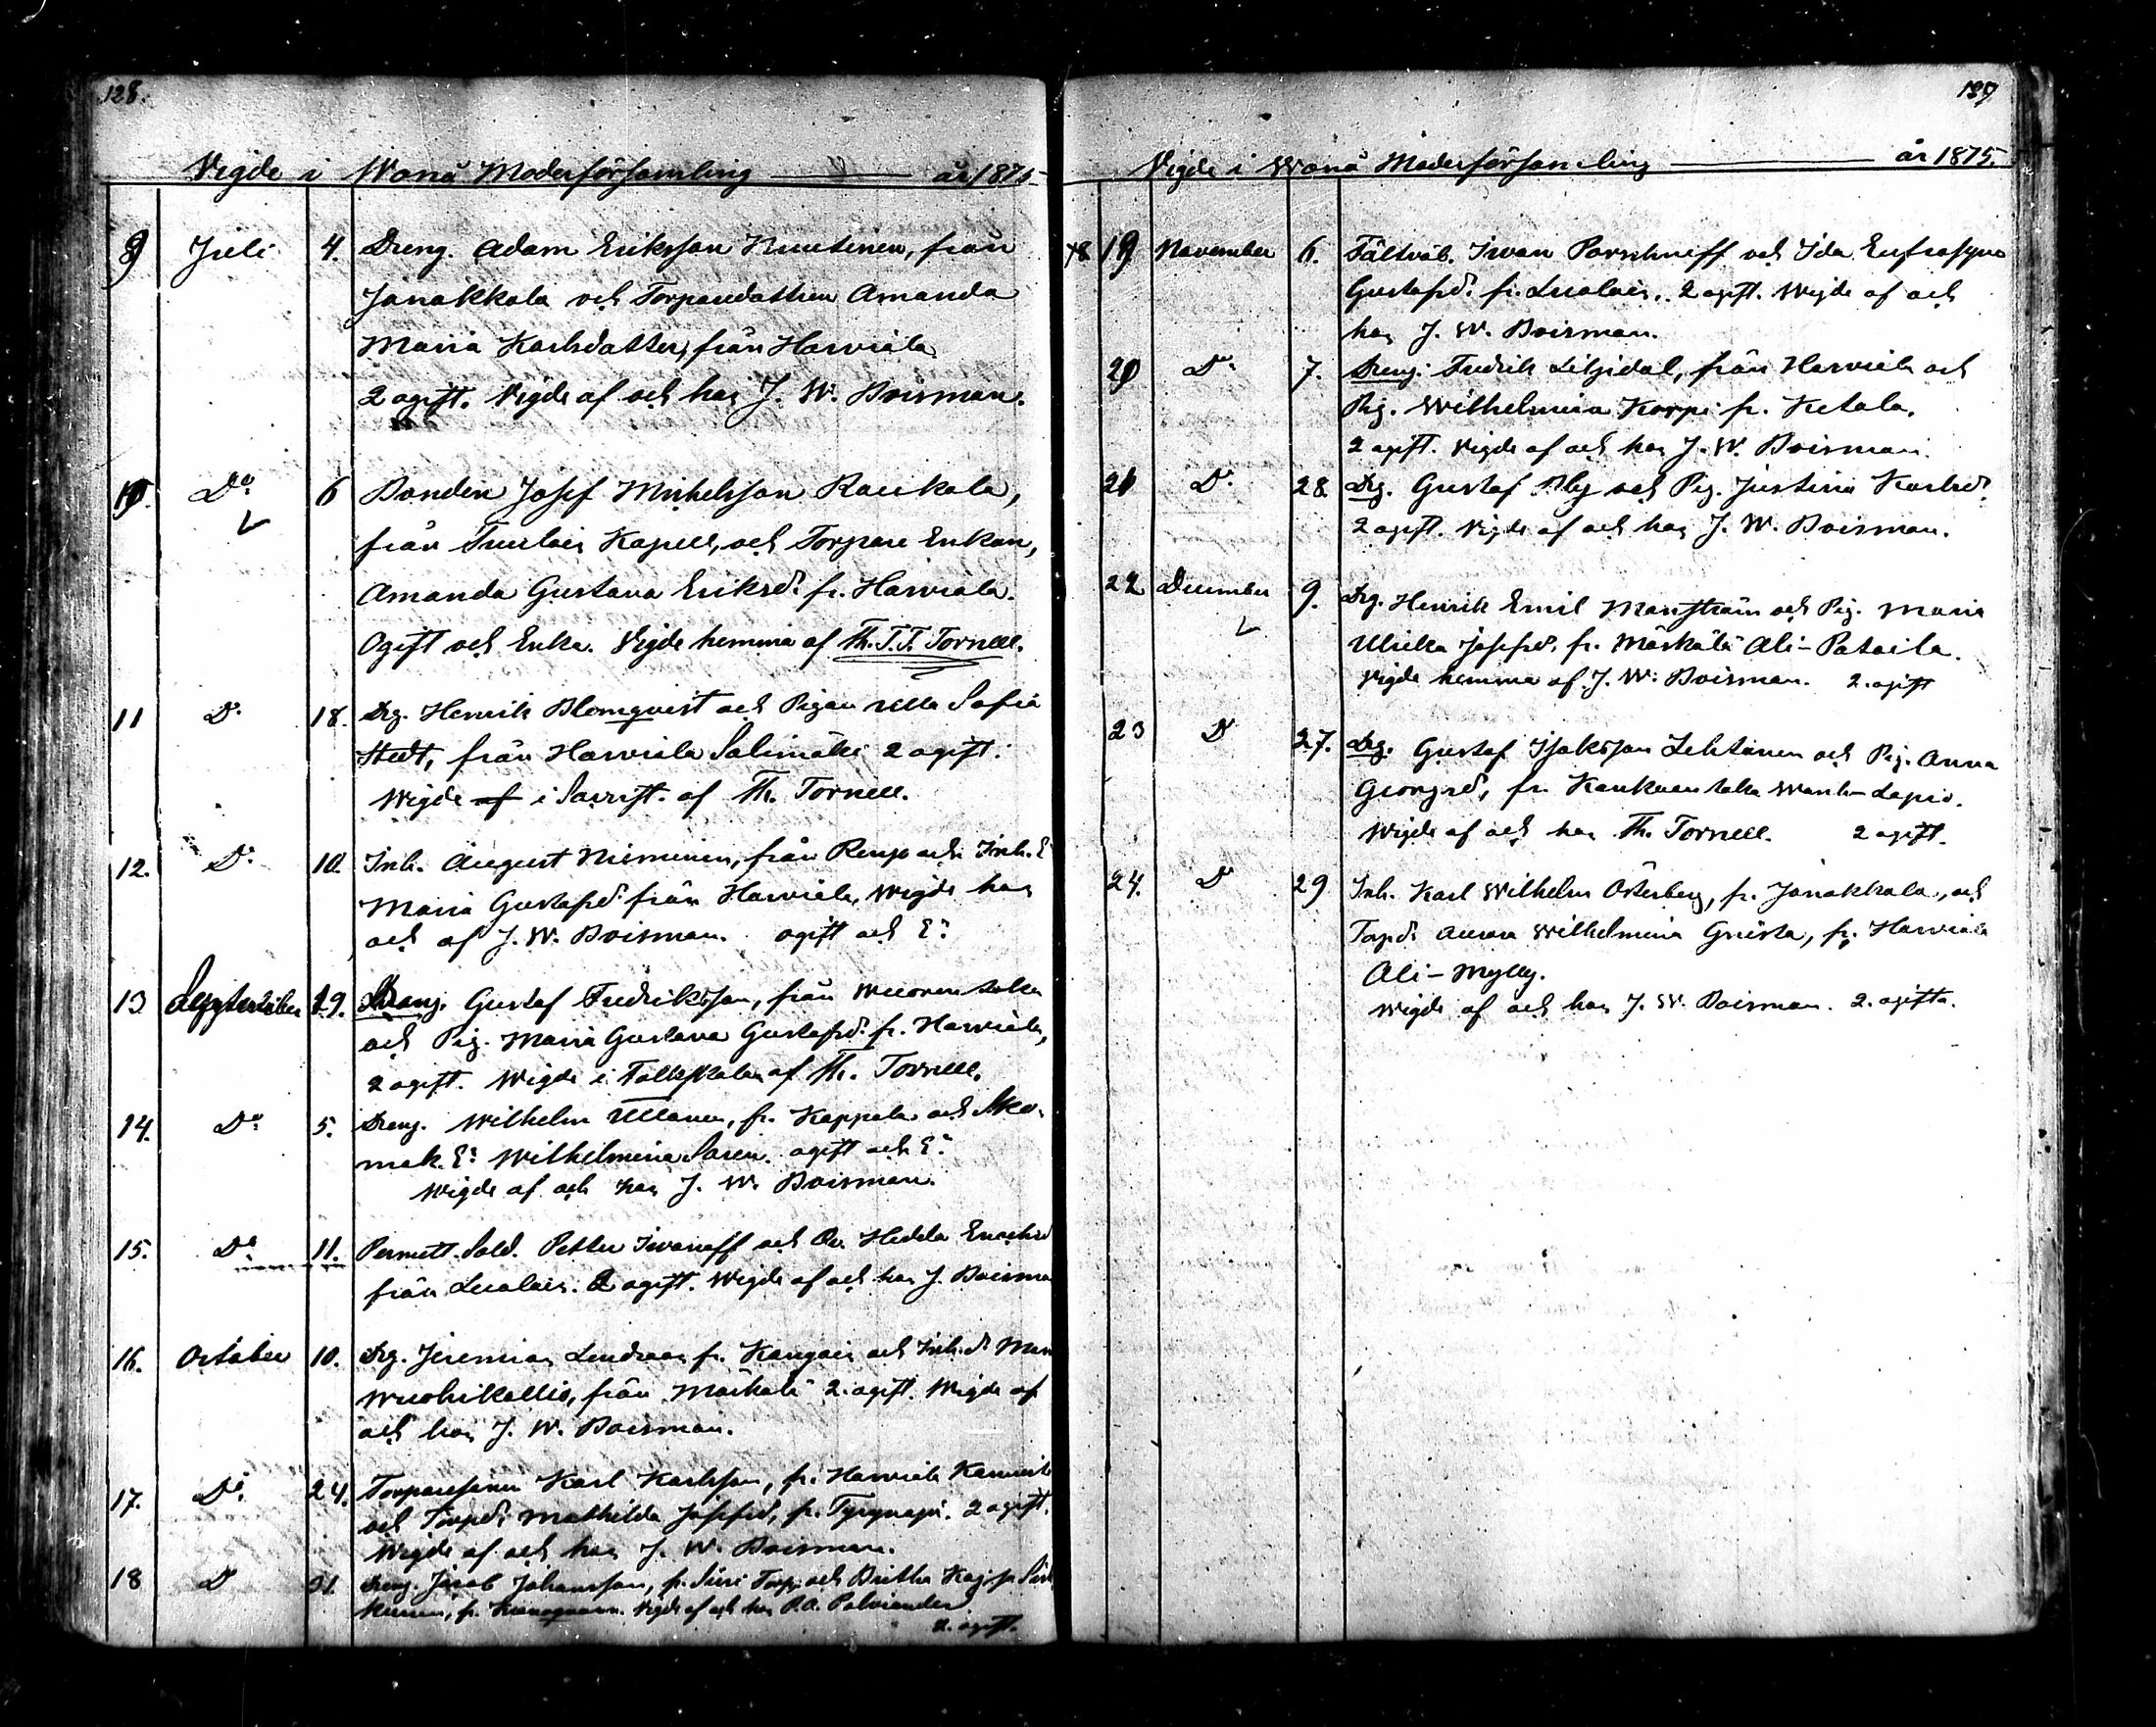 128.
Vigde i Wånå Moderförsamling år 1875
9 Juli 4. Dreng. Adam Eriksson Knutinen, från
Janakkala och Torparedottren Amanda
Maria Karlsdotter, från Harviala
2 ogift. Vigde af och hos J. W. Boisman.
10. Do 6 Bonden Josef Michelsson Raukola,
från Tuulois Kapell, och Torpare Enkan,
Amanda Gustava Eriksd. fr. Harviala.
Ogift och Enka. Vigde hemma af Th. T. T. Tornell.
11 Do 18. Drg. Henrik Blomqvist och Pigan Ulla Sofia
Stedt, från Harviala Salimäki 2 ogift.
Wigde af i Sacrist. af Th. Tornell.
12. Do 10. Inh. August Nieminen, från Renjo och Inh. E
Maria Gustafsd. från Harviala, Wigde hos
och af J. W. Boisman. ogift och Ea
13 September 29. Dreng. Gustaf Fredriksson, från Wuorentaka
och Pig. Maria Gustava Gustafsd. fr. Harviala,
2 ogift. Wigde i Folkskolan af Th. Tornell.
14. Do 5. Dreng. Wilhelm Ullanen, fr. Kappola och Sko-
mak. Ea Wilhelmina Saren. ogift och Ea
Wigde af och hos J. W. Boisman.
15. Do 11. Permett. Sold. Petter Iwaneff och Qv. Hedda Enochsd
från Luolais. 2 ogift. Wigde af och hos J. Boisma
16. October 10. Drg. Jeremias Lindroos fr. Kangais och Inh.d. Mari
Wuohikallio, från Mäskälä 2. ogift. Wigde af
och hos J. W. Boisman.
17. Do 24. Torparesonen Karl Karlsson, fr. Harviala
och Torpd. Mathilda Josefsd, fr. 2 ogift.
Wigde af och hos J. W. Boisman.
18 D 31. Dreng. Jacob Johansson, fr. Siiri Torp och Britha Kajsa
fr. Wigde af och hos P. A. Palviander
2. ogift.
129
Vigde i Wånå Moderförsamling år 1875.
18 19 November 6. Fältväb. Iwan Porschneff och Ida Eufrosyna
Gustafsd. fr. Luolais. 2 ogift. Wigde af och
hos J. W. Boisman.
20 Do 7. Dreng. Fredrik Liljedal, från Harviala och
Pig. Wilhelmina Korpi fr. Ketola.
2 ogift. Vigde af och hos J. W. Boisman.
21 Do 28 Drg. Gustaf Bly och Pig. Justina Karlsd.
2 ogift. Vigde af och hos J. W. Boisman.
22 December 9. Drg. Henrik Emil Manström och Pig. Maria
Ulrika Josefsd. fr. Mäskälä Ali-Pataila.
Vigde hemma af J. W. Boisman. 2. ogift
23 D 27. Drg. Gustaf Isaksson Lehtinen och Pig. Anna
Georgsd, fr. Kankaentaka
Wigde af och hos Th. Tornell. 2 ogift.
24. D 29 Inh. Karl Wilhelm Österberg, fr. Janakkala, och
Torpd. Aurora Wilhelmina Grista, fr. Harviala
Ali-Mylly.
Wigde af och hos J. W. Boisman. 2. ogifta.